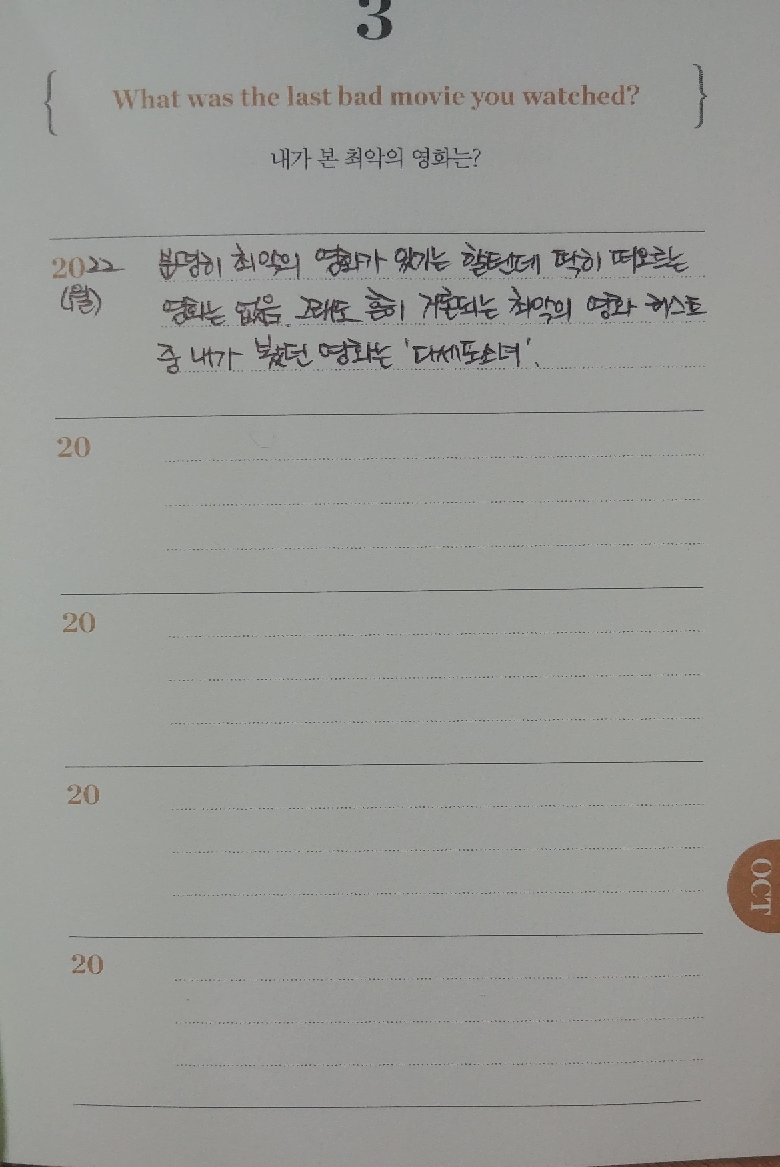 3
{ What was the last bad movie you watched? }
내가 본 최악의 영화는?
2022 분명히 최악의 영화가 있기는 할텐데 딱히 떠오르는
(월) 영화는 없음. 그래도 흔히 거론되는 최악의 영화 리스트
중 내가 봤던 영화는 '다세포소녀'.
20
20
20
20
OCT